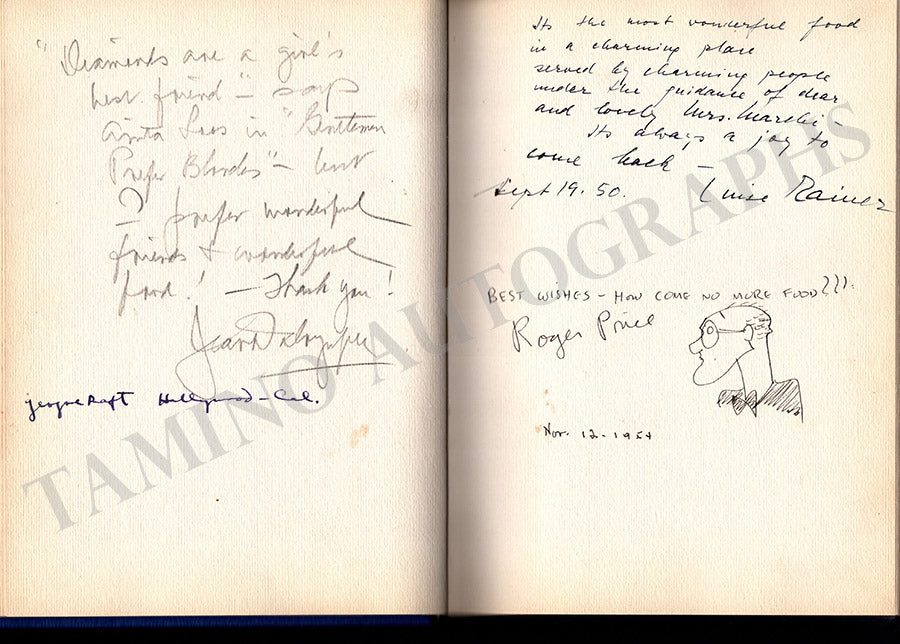 "Diamonds are a girl's
best friend" – says
Anita Loos in "Gentlemen
Prefer Blondes" – but
I prefer wonderful
friends & wonderful
food! – Thank you!
Jean Dalrymple
George Raft Hollywood – Cal.
Its the most wonderful food
in a charming place
served by charming people
under the guidance of dear
and lovely Mrs.
Its always a joy to
come back –
Sept 19. 50. Luise Rainer
BEST WISHES – HOW COME NO MORE FOOD???!
Roger Price
Nov. 12 - 1954
TAMINO AUTOGRAPHS